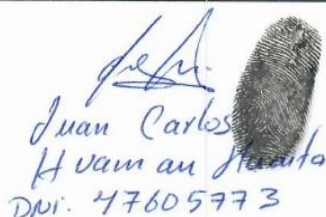 Juan Carlos
Huaman Huanta
DNI. 47605773